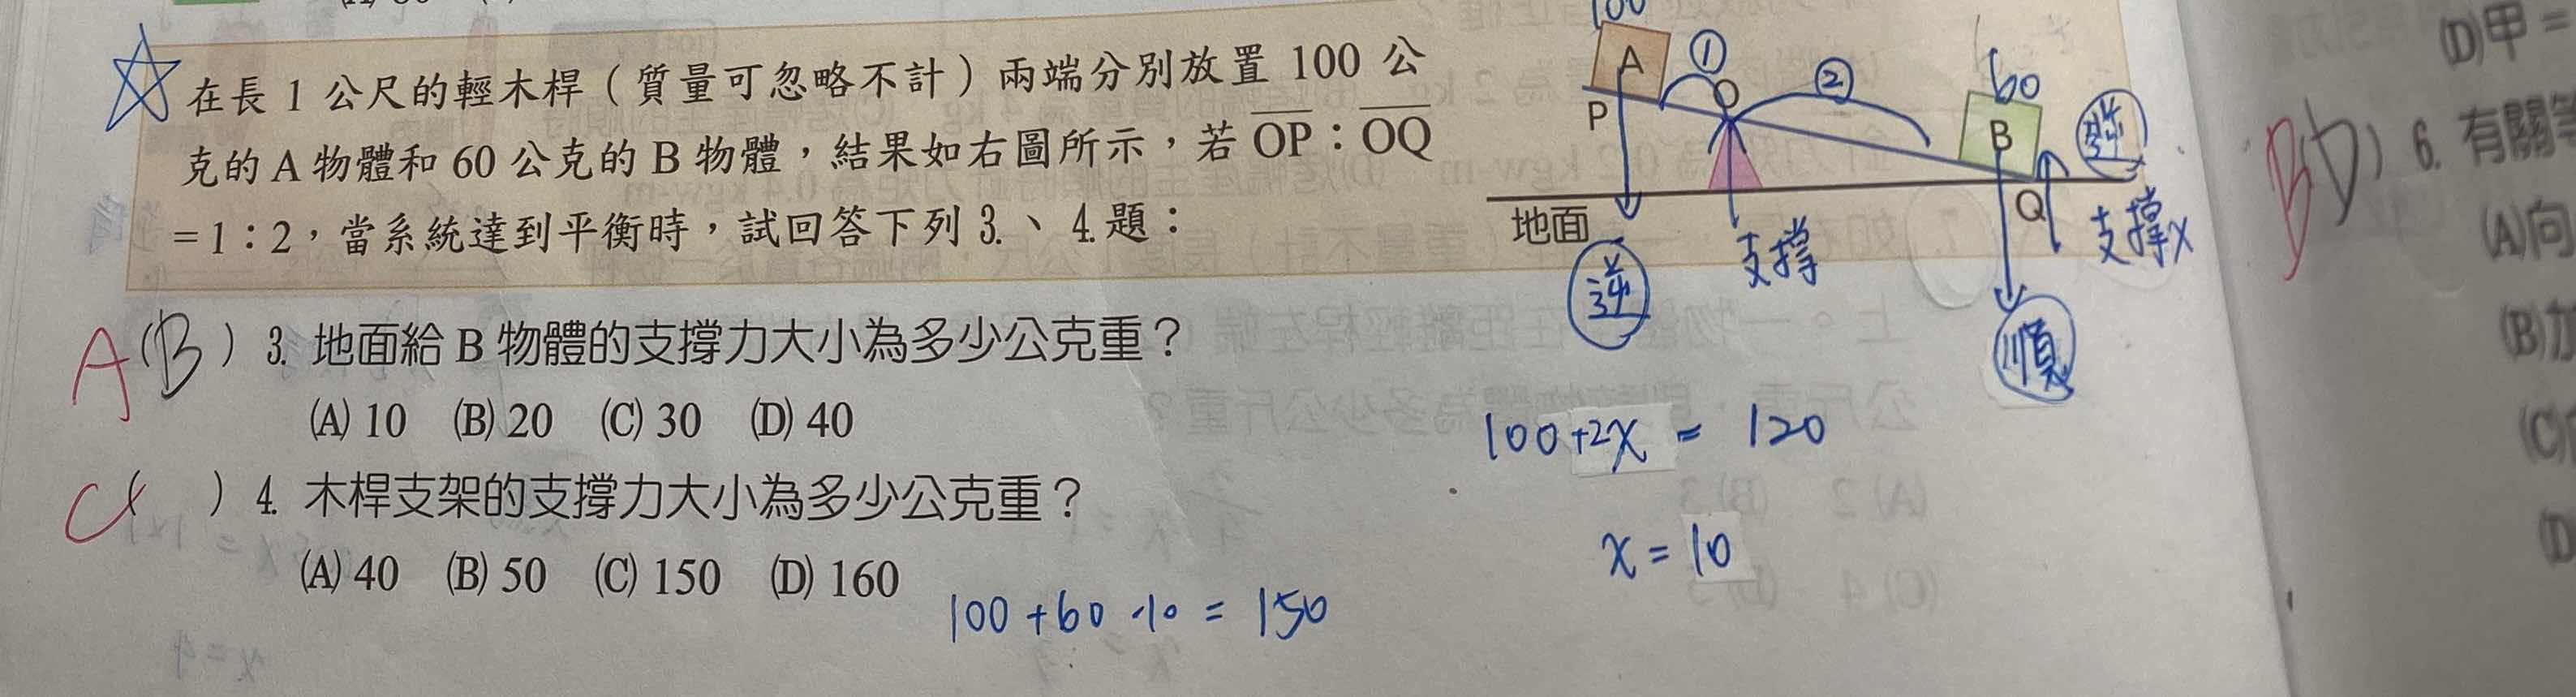 100
在長 1 公尺的輕木桿（質量可忽略不計）兩端分別放置 100 公
克的 A 物體和 60 公克的 B 物體，結果如右圖所示，若 OP：OQ
=1：2，當系統達到平衡時，試回答下列 3.、4.題：
A ① O ② 60 B
P Q
地面
逆 支撐 順 逆 支撐x
A (B) 3. 地面給 B 物體的支撐力大小為多少公克重？
(A) 10 (B) 20 (C) 30 (D) 40
C ( ) 4. 木桿支架的支撐力大小為多少公克重？
(A) 40 (B) 50 (C) 150 (D) 160
100+60-10=150
100+2x = 120
x=10
(D)甲=
6. 有關
(A)向
(B)加
(C)
(D